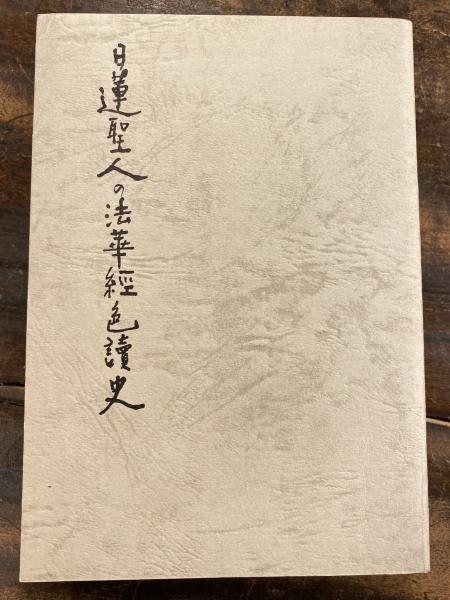 日蓮聖人の法華經色讀史